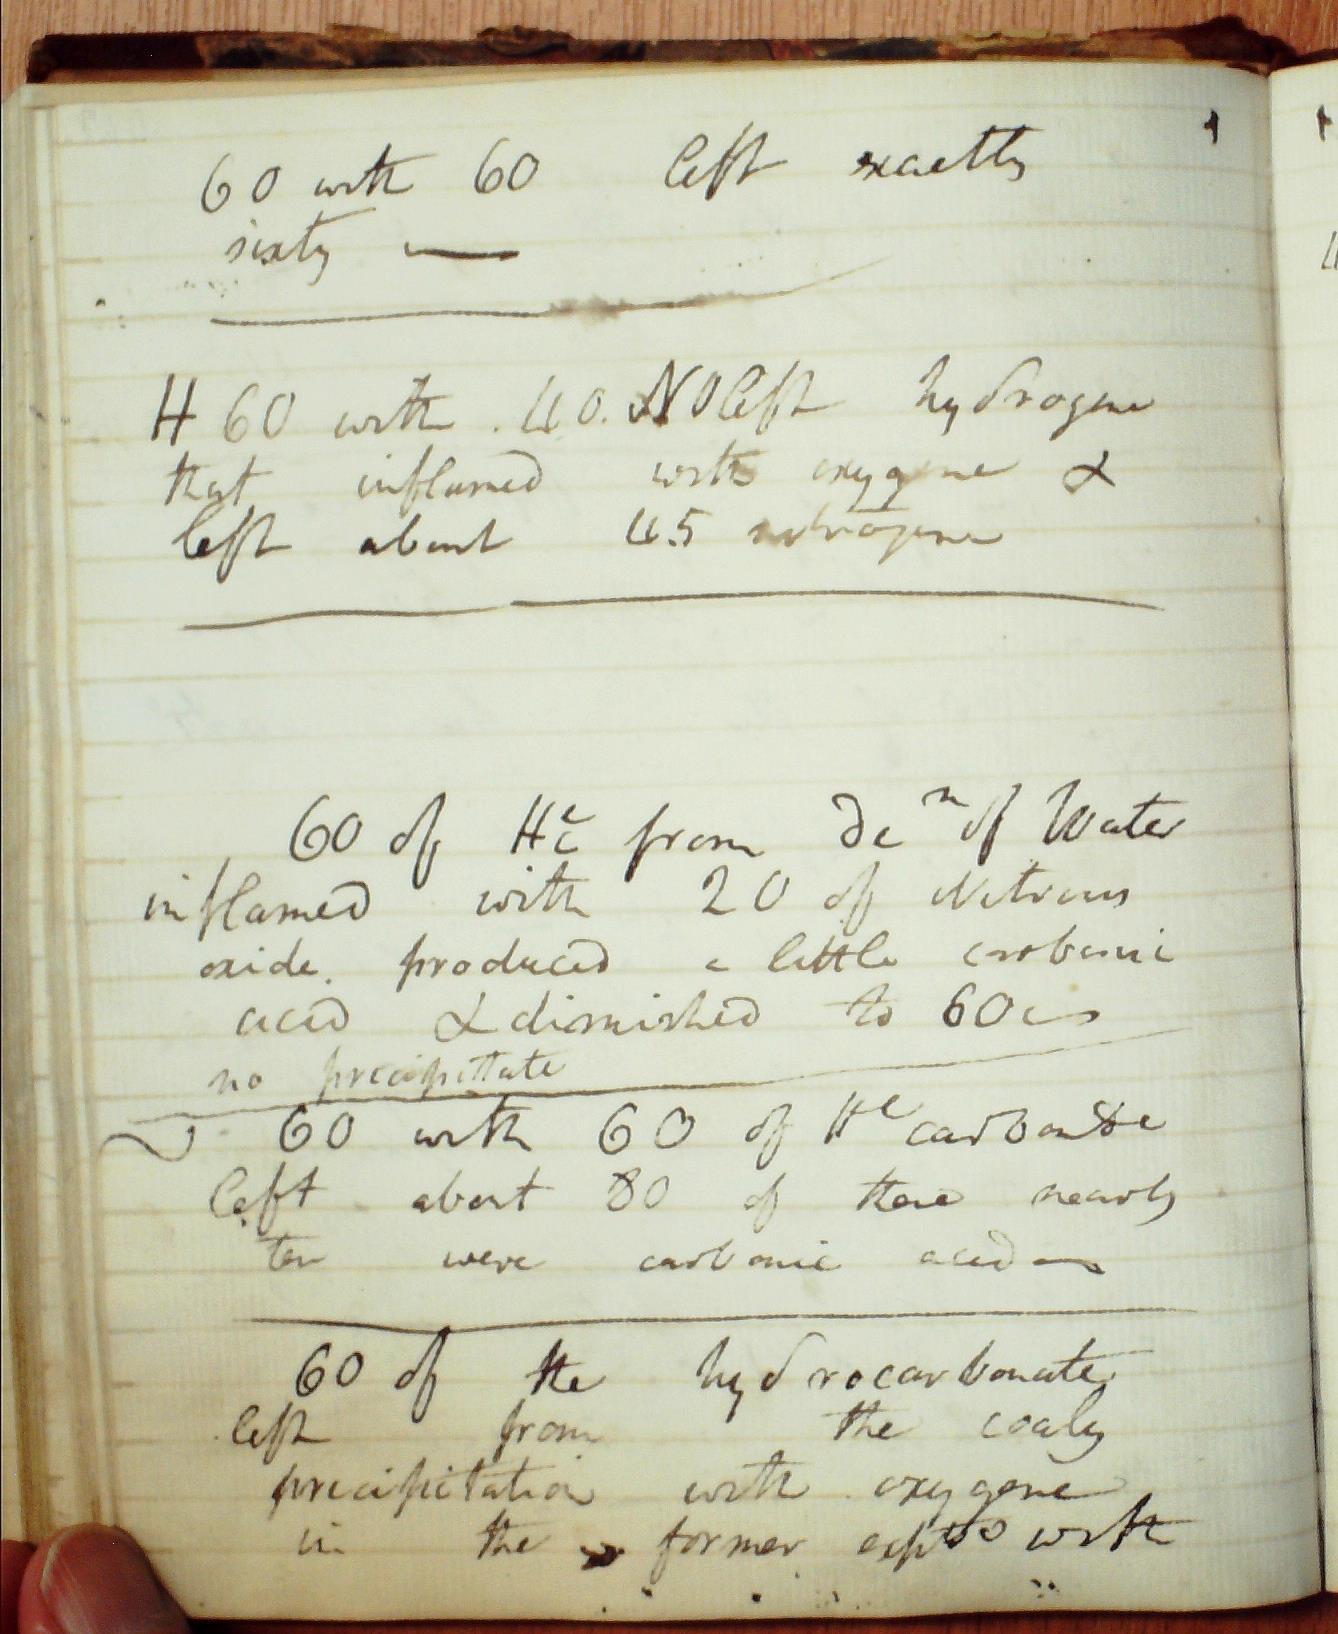 60 with 60 left exactly
sixty —
H 60 with . 40. NO left hydrogene
that inflamed with oxygene &
left about 45 nitrogene
60 of H^c from De^n of Water
inflamed with 20 of Nitrous
oxide. produced a little carbonic
acid & diminished to 60
no precipittate
60 with 60 of H^e carbonate
left about 80 of these nearly
ten were carbonic acid —
60 of the hydrocarbonate
left from the coaly
precipitation with oxygene
in the former expts with